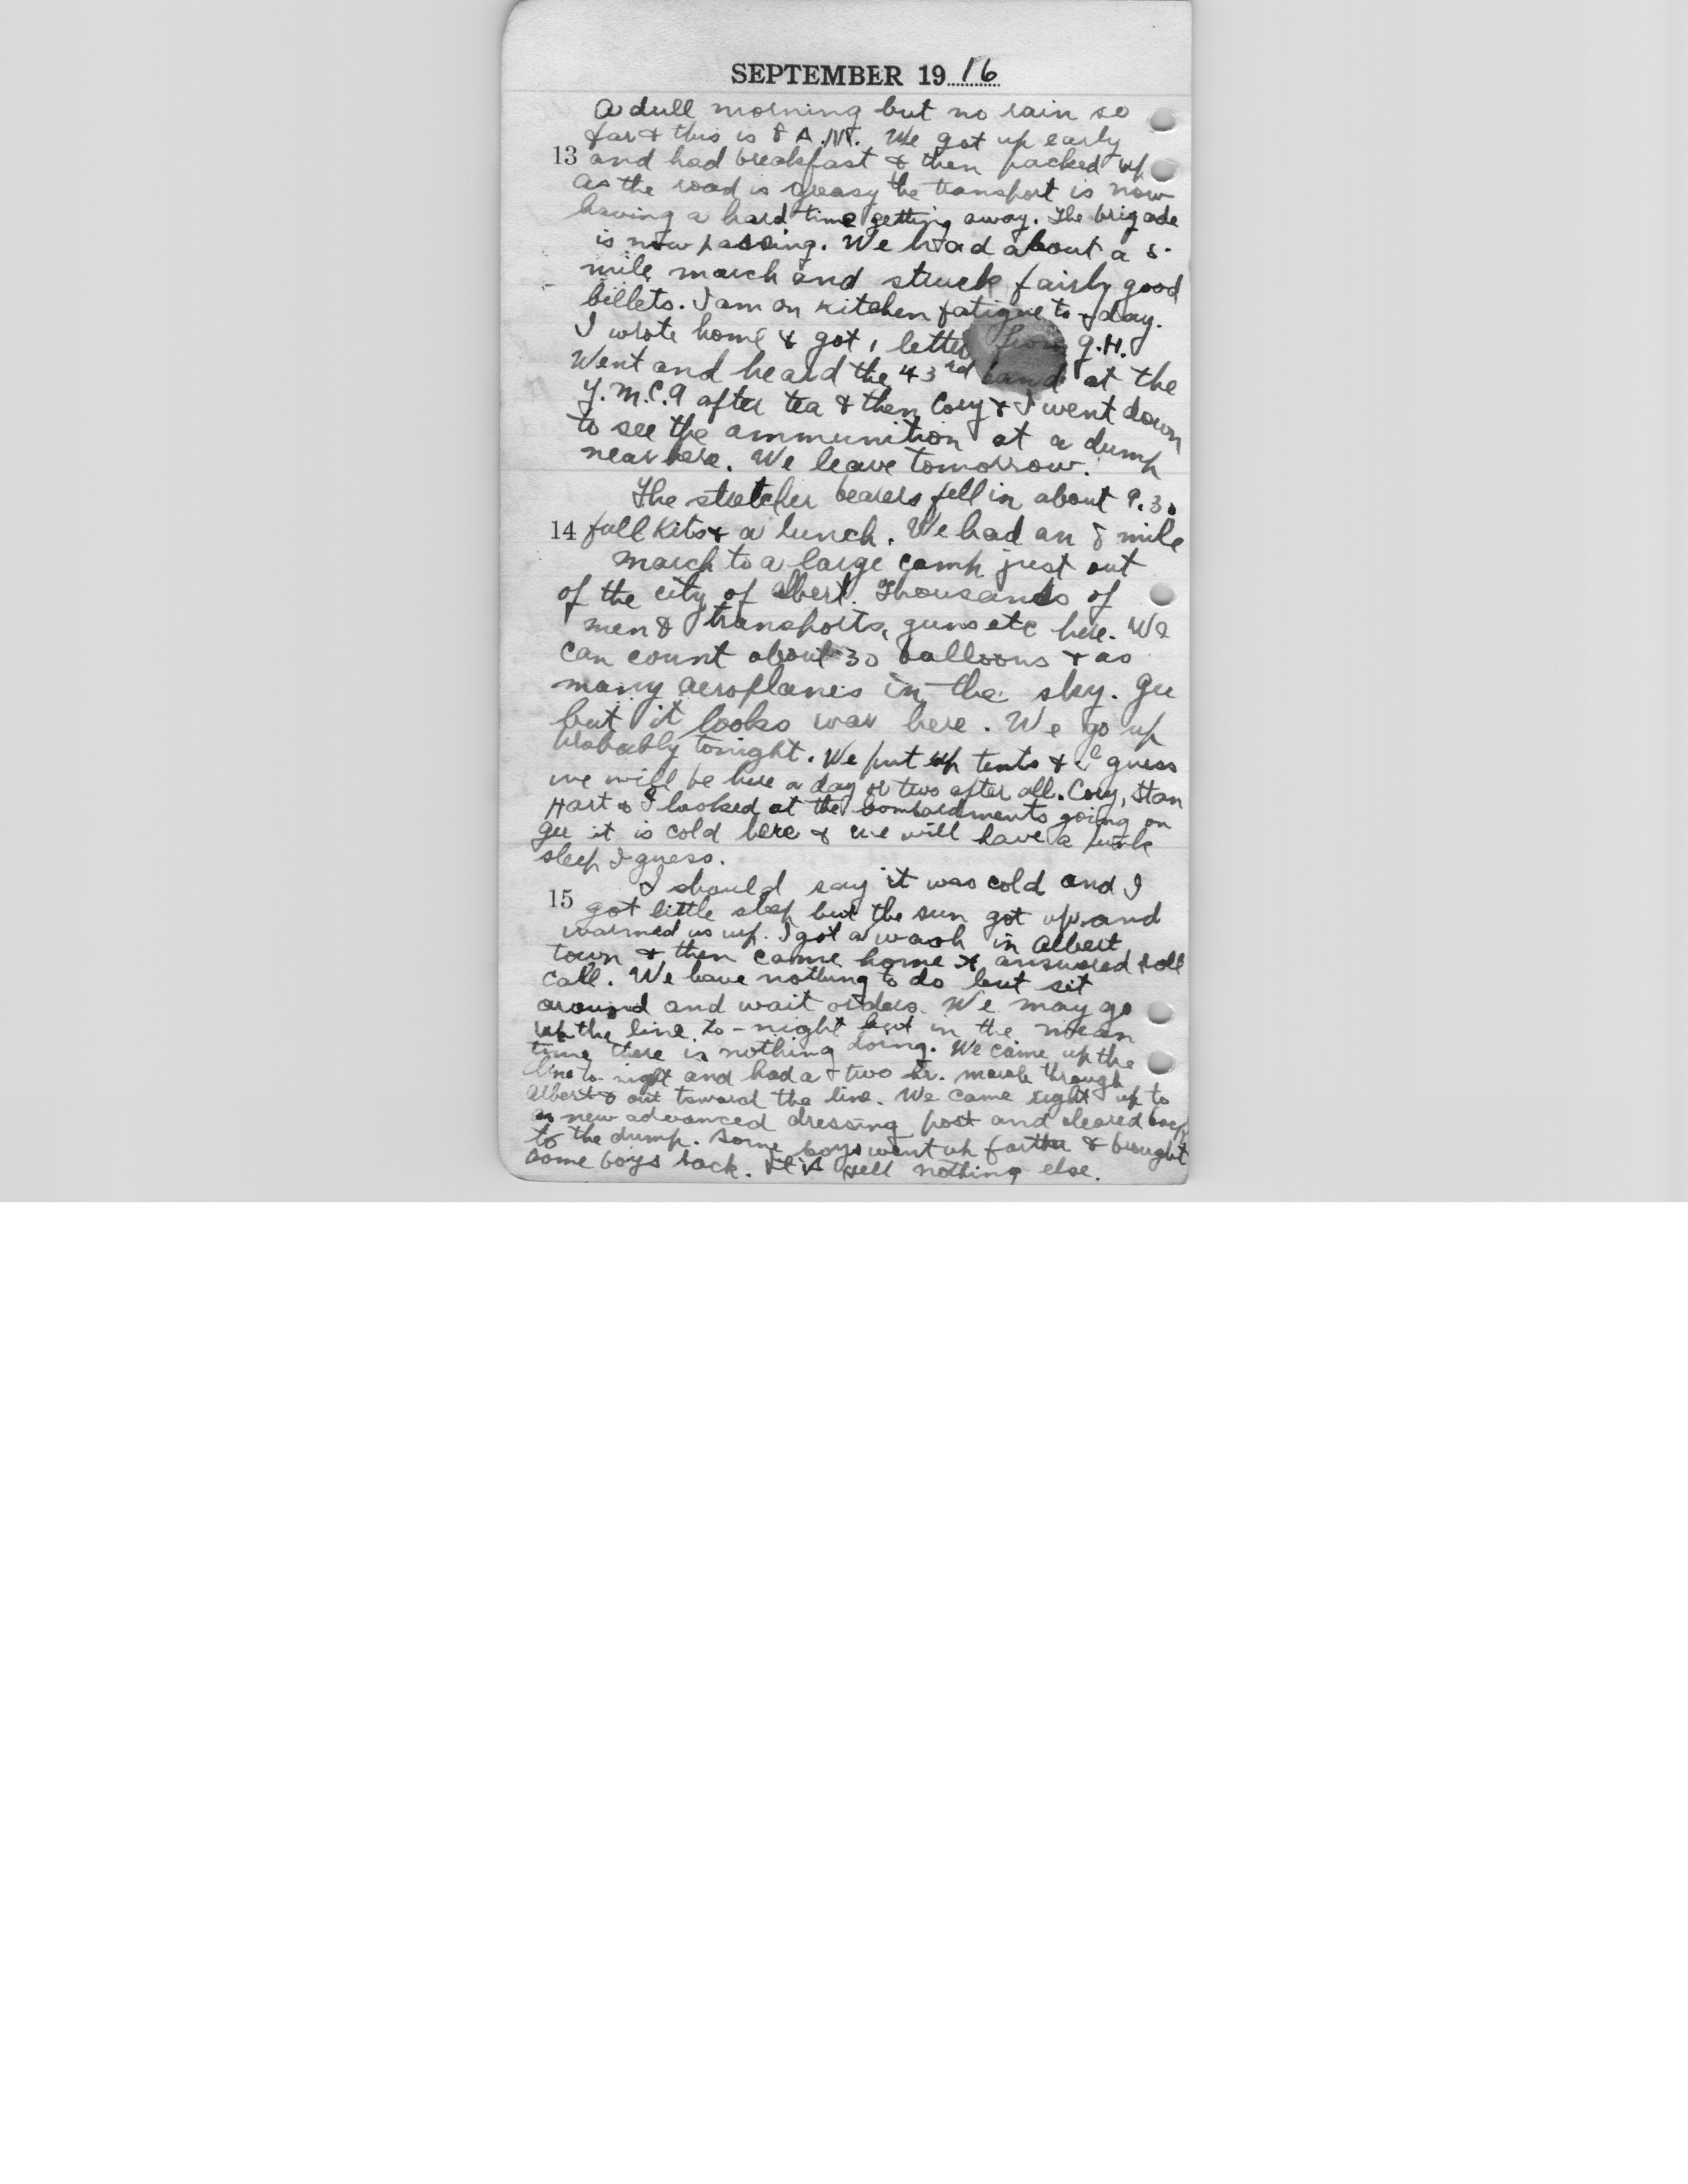 SEPTEMBER 1916
A dull morning but no rain so
far & this is 8 A.M. We got up early
13 and had breakfast & then packed up
as the road is greasy the transport is now
having a hard time getting away. The brigade
is now passing. We had about a 5
mile march and struck fairly good
billets. I am on kitchen fatigue to-day.
I wrote home & got 1 letter from G.H.
Went and heard the 43rd band at the
Y.M.C.A after tea & then Cory & I went down
to see the ammunition at a dump
near here. We leave tomorrow.
The stretcher bearers fell in about 9.30
14 full kits & a lunch. We had an 8 mile
march to a large camp just out
of the city of Albert. Thousands of
men & transports, guns etc here. We
can count about 30 balloons & as
many aeroplanes in the sky. Gee
but it looks war here. We go up
probably tonight. We put up tents & I guess
we will be here a day or two after all. Cory, Stan
Hart & I looked at the bombardments going on
Gee it is cold here & we will have a punk
sleep I guess.
I should say it was cold and I
15 got little sleep but the sun got up and
warmed us up. I got a wash in Albert
town & then came home & answered roll
call. We have nothing to do but sit
around and wait orders. We may go
up the line to-night but in the mean
time there is nothing doing. We came up the
line to night and had a two hr. march through
Albert & out toward the line. We came right up to
a new advanced dressing post and cleared back
to the dump. Some boys went up farther & brought
some boys back. It is hell nothing else.